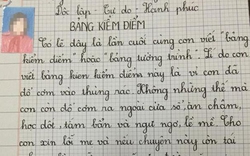 Độc lập - Tự do - Hạnh phúc
BẢNG KIỂM ĐIỂM
Có lẽ đây là lần cuối cùng con viết "bảng
kiểm điểm" hoặc "bảng tường trình". Lí do con
viết bảng kiểm điểm này là vì con đã
đổ cơm vào thùng rác. Không những thế mà
con còn đổ cơm ra ngoài cửa sổ, ăn chậm,
học dốt, tắm bẩn và ngủ ngơ, lề mề. Cho
con xin lỗi mẹ và nếu chuyện này còn tái